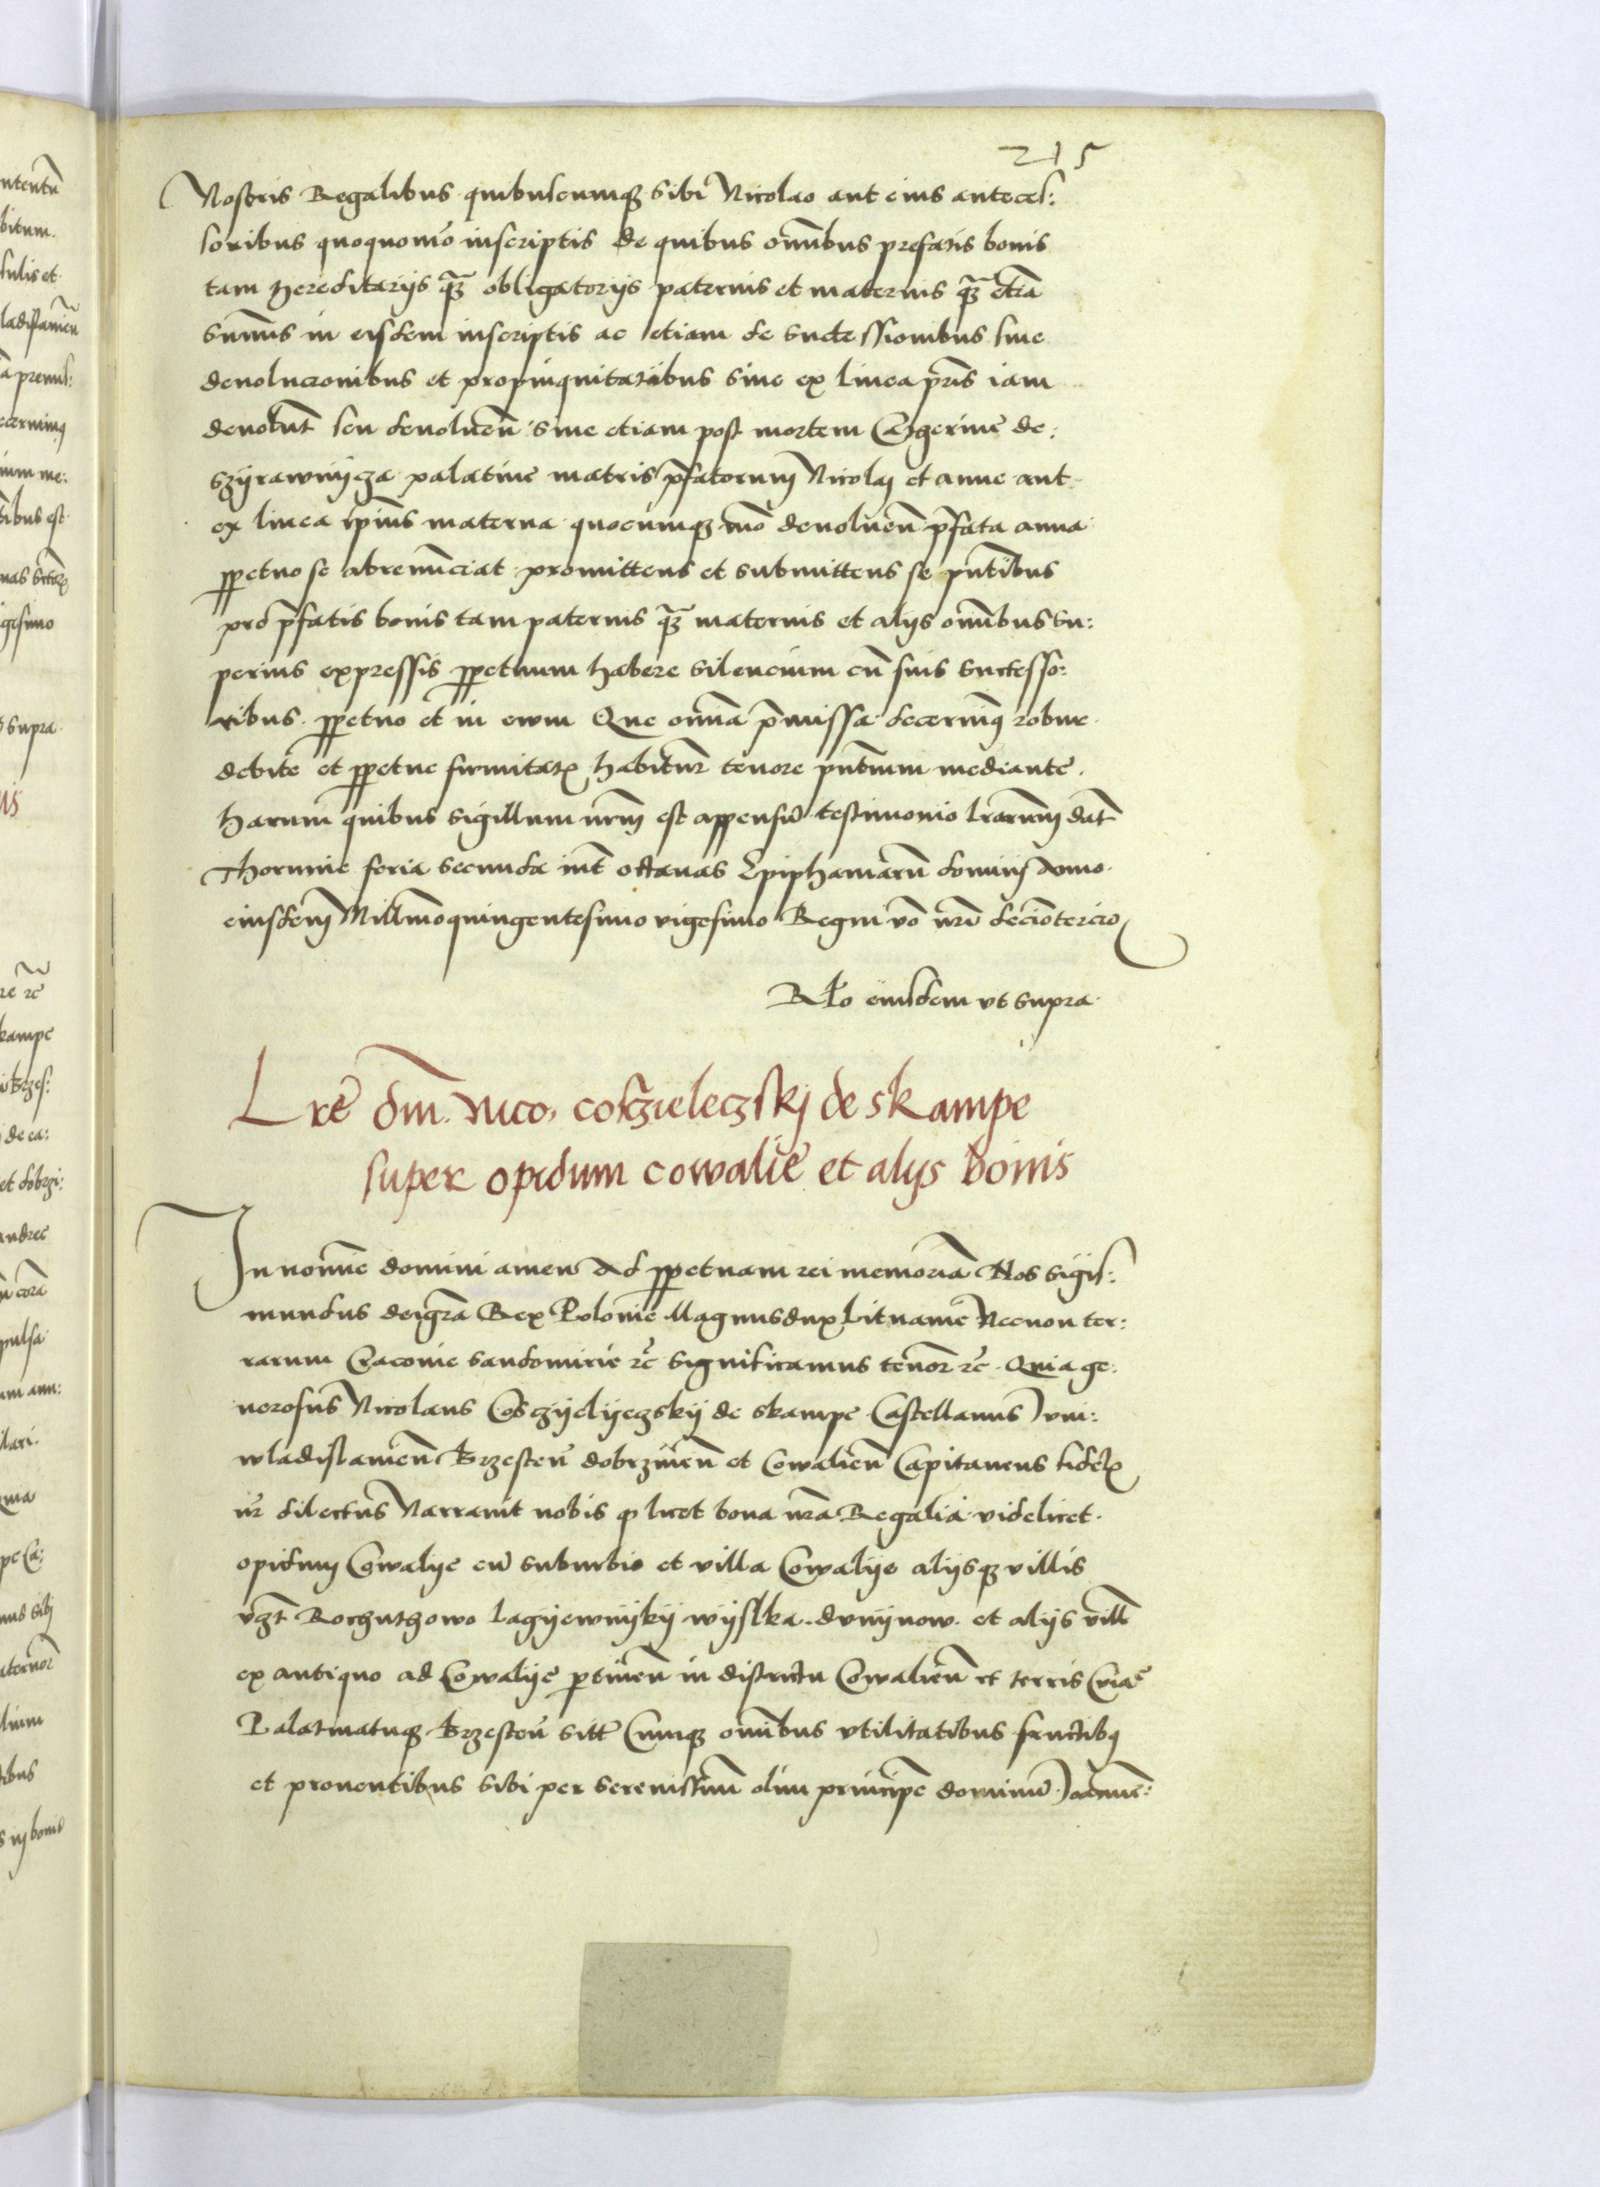 215
Nostris Regalibus quibuscumq3 sibi Nicolao aut eius anteces:
soribus quoquomo inscriptis de quibus omībus prefatis bonis
tam hereditariis q̄3 obligatoriis paternis et maternis q̄3 etiā
summis in eisdem inscriptis ac etiam de successionibus sive
devolucionibus et propinquitatibus sive ex linea pr̄is iam
devolut̄ seu devoluen̄ sive etiam post mortem de:
palatine matris p̄fatorum Nicolai et anne aut
ex linea ip̄ius materna quocumq3 mō devoluen̄ p̄fata anna
ppetuo se abrenūciat promittens et submittens se pn̄tibus
pro p̄fatis bonis tam paternis q̄3 maternis et aliis omībus su:
perius expressis ppetuum habere silencium cū suis successo:
ribus ppetuo et in evum Que om̄ia p̄missa decernimꝰ robur
debite et ppetue firmitatꝭ habitur̄ tenore pn̄tium mediante
harum quibus sigillum nrm̄ est appensū testimonio lrarum dat̄
Thorunie feria secunda int̄ octavas Epiphaniarū domini Anno
eiusdem Millimoquingentesimo vigesimo Regni vō nrī decimotercio
Rlō eiusdem ut supra
Lrē dm̄ Nico. coszczieleczskj de skampe
super opidum cowalie et aliis bonis
In nomīe domini amen Ad ppetuam rei memoriā Nos Sigis:
mundus deigrā Rex Polonie Magnusdux Lituanie Necnon ter:
rarum Cracovie Sandomirie zc̄ Significamus tenor̄ zc̄ Quia ge:
nerosus Nicolaus Cosczyelyeczskij de skampe Castellanus Iuni:
wladislavien̄ Brzesten̄ dobrzinen̄ et Cowalien̄ Capitaneus fidelꝭ
nr̄ dilectus Narravit nobis ꝙ licet bona nrā Regalia videlicet
opidum Cowalye cū suburbio et villa Cowalye aliisq3 villis
v3t Roczuthowo Lagyewnykij wyslka dvnijnow et aliis vill̄
ex antiquo ad Cowalye ptinen̄ in districtu Cowalien̄ et terris Cuiā
Palatinatuq3 Brzesten̄ sitt̄ Cumq3 omībus utilitatibus fructibꝰ
et proventibus sibi per serenissimū olim principē dominū Ioanne: